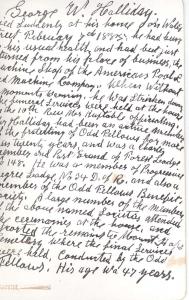 George W. Halliday
ed Suddenly at his home Don Wells
reet February 7th 1895, he had been
his usual health, and had just
turned from his place of business, the
ening Shop of the American Tool &
ed Machine Company. When Without
moments warning he was Stricken down
e funeral Services were held at the house
the 10th. Rev. Mr. officiating
Mr Halliday had been an active member
the fratelling of Odd Fellows for more
an twenty years, and was a charter
ember and Past Grand of Forest Lodge
o 148. He was a member of Progressive
egree Lodge No 34 D. of R, and also a
ember of the Odd Fellows Benefit
ociety. A large number of the Members
the above named Societies attended
the ceremonies at the house, and
scorted the remains to Mount Hope
emetery where the final Services
ere held, Conducted by the Odd
Fellows. His age was 47 years.